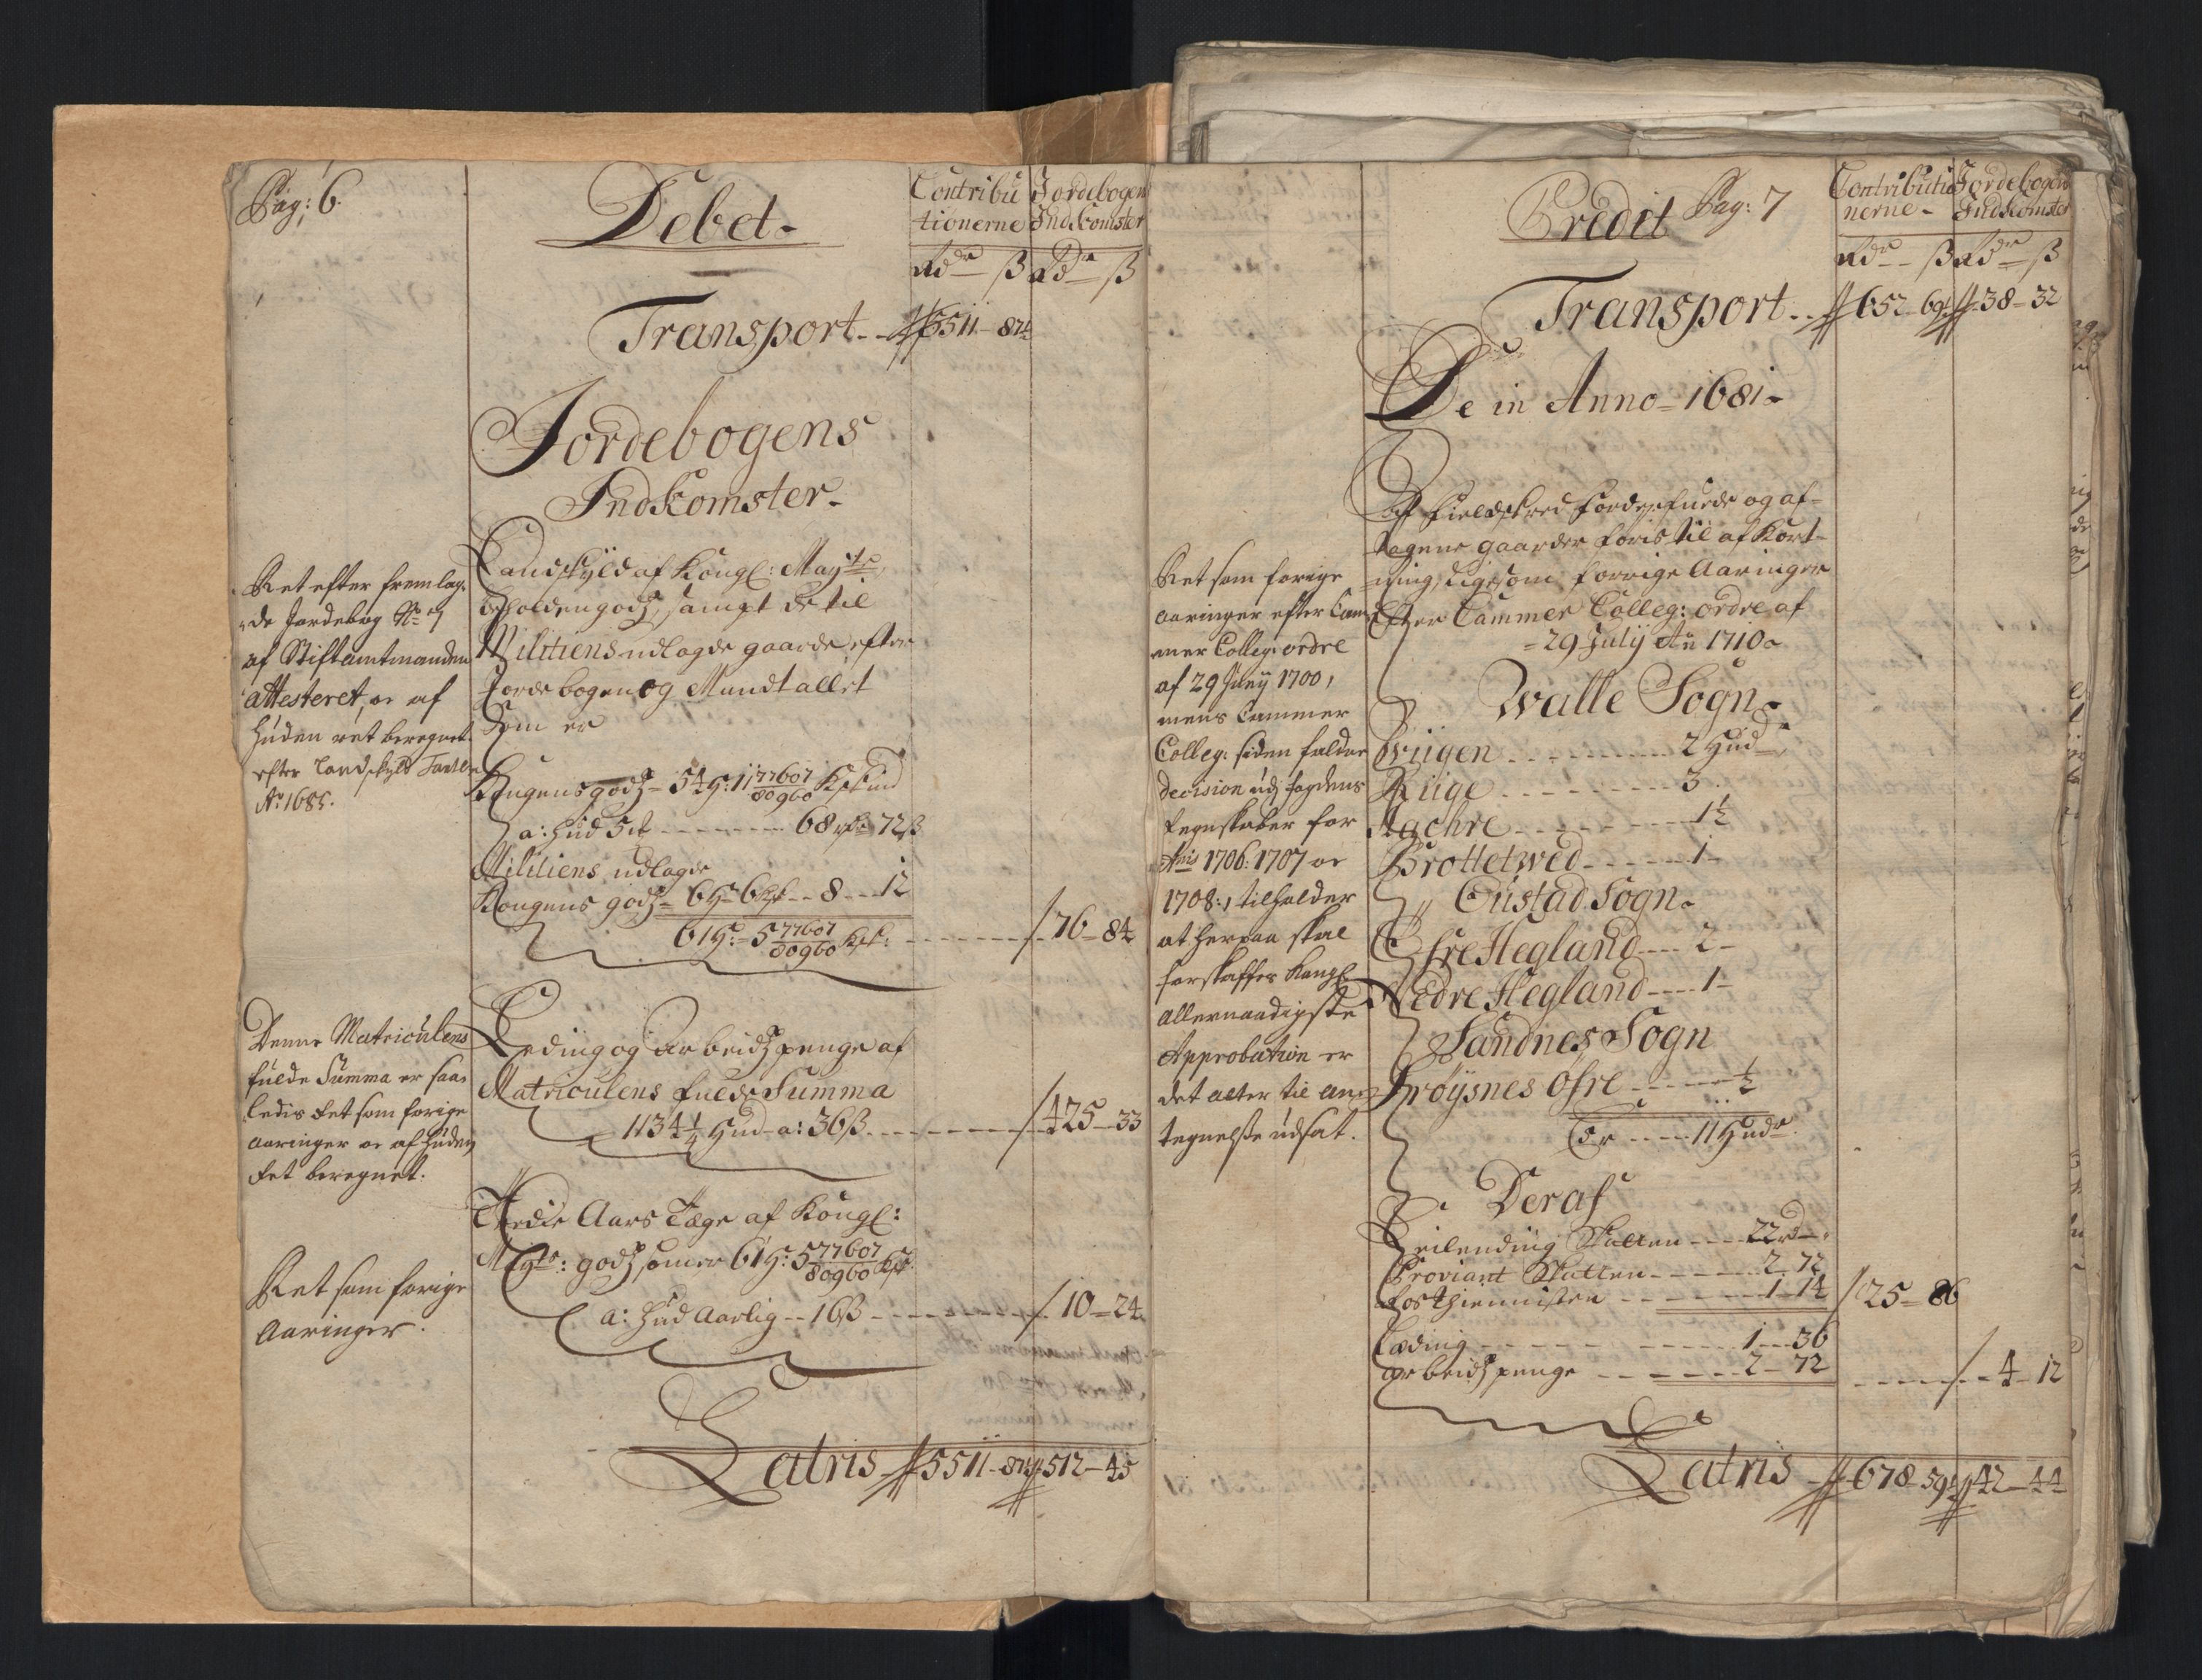 Pag: 6.
Debet
Contribu
tionerne
Jordebogens
Indkomster
Rdr ß
Rdr ß
Transport 5511 - 87½
Jordebogens
Indkomster
Landskyld af Kongl: Mayts
beholden godz, sampt de til
Militiens udlagde gaarde, efter
Jordebogen og Mandtallet
Som er
Kongens godz - 54 H: 11 77607/80960 Kpskind
a: Hud 5 ort 68 rdr 72 ß
Militiens udlagde
Kongens godz - 6 H 6 Kps - 8 - 12
61 H: 5 77607/80960 Kps: 76 - 84
Leding og Arbeidzpenge af
Matriculens fulde Summa
1134¼ Hud a: 36 ß 425 - 33
Tredie Aars Tage af Kongl:
Mayts: godz som er 61 H: 5 77607/80960 Kps
a: Hud Aarlig 16 ß 10 - 24
Latris 5511 - 87½ 512 - 45
Ret efter fremlag-
de Jordebog No
af Stiftamtmanden
attesteret, er af
Huden ret beregnet
efter Landskylds
Ao 1685.
Denne Matriculens
fulde Summa er saa-
ledis ret som forige
Aaringer er af Huden
ret beregnet.
Ret som forige
Aaringer.
Credit
Pag: 7
Contributio
nerne
Jordebogens
Indkomster
Rdr ß
Rdr ß
Transport 652 - 69½ 38 - 32
De in Anno 1681
Af fieldskred forderfuede og af-
tagene gaarder føris til afkort-
ning, ligesom forrige Aaringer
Efter Cammer Colleg: ordre af
29 Julij Ao 1710
Walle Sogn
Wiigen 2 Hud
Riige 3
Aachre 1½
Brottetwed 1
Øustad Sogn
Øfre Hegland 2
Nedre Hegland 1
Sandnes Sogn
Frøysnes Øfre ½
Er 11 Huder
Deraf
Leilending Skatten 22 rd
Proviant Skatten 2 - 72
Ros thienisten 1 - 14 25 - 86
Læding 1 - 36
Arbeidzpenge 2 - 72 4 - 12
Latris 678 - 59½ 42 - 44
Ret som forige
aaringer efter Cam-
mer Colleg: ordre
af 29 1700,
mens Cammer
Colleg: siden faldne
Decision udj fogdens
Regnskaber for
Anis 1706. 1707 er
1708:, tilholder
at herpaa skal
forskaffes Kongl
allernaadigste
Approbation er
det alter til An-
tegnelsse udsat.